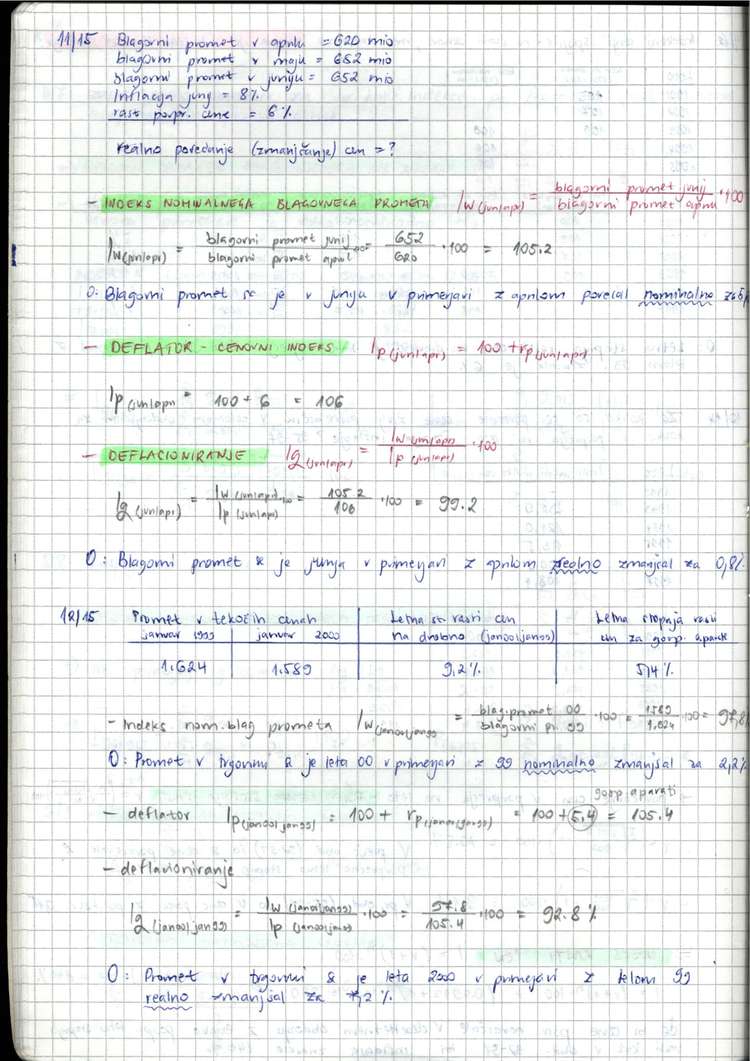 11/15 Blagovni promet v aprilu = 620 mio
blagovni promet v maju = 652 mio
blagovni promet v juniju = 652 mio
Inflacija junij = 8%
rast povpr. cene = 6%
realno povečanje (zmanjšanje) cen = ?
- INDEKS NOMINALNEGA BLAGOVNEGA PROMETA Iw(jun/apr) = blagovni promet junij / blagovni promet april · 100
Iw(jun/apr) = blagovni promet junij / blagovni promet april · 100 = 652 / 620 · 100 = 105.2
O: Blagovni promet se je v juniju v primerjavi z aprilom povečal nominalno za 5
- DEFLATOR - CENOVNI INDEKS Ip(jun/apr) = 100 + rp(jun/apr)
Ip(jun/apr) = 100 + 6 = 106
- DEFLACIONIRANJE Ig(jun/apr) = Iw(jun/apr) / Ip(jun/apr) · 100
Ig(jun/apr) = Iw(jun/apr) / Ip(jun/apr) · 100 = 105.2 / 106 · 100 = 99.2
O: Blagovni promet se je junija v primerjavi z aprilom realno zmanjšal za 0,8%
12/15 Promet v tekočih cenah Letna st. rasti cen Letna stopnja rasti
januar 1999 januar 2000 na drobno (jan00/jan99) cen za gosp. aparate
1.624 1.589 9,2% 5,4%
- Indeks nom. blag prometa Iw(jan00/jan99) = blag. promet 00 / blagovni pr. 99 · 100 = 1589 / 1.624 · 100 = 97,8
O: Promet v trgovini se je leta 00 v primerjavi z 99 nominalno zmanjšal za 2,2%
gosp aparati
- deflator Ip(jan00/jan99) = 100 + rp(jan00/jan99) = 100 + 5,4 = 105.4
- deflacioniranje
Ig(jan00/jan99) = Iw(jan00/jan99) / Ip(jan00/jan99) · 100 = 97.8 / 105.4 · 100 = 92.8%
O: Promet v trgovini se je leta 2000 v primerjavi z letom 99
realno zmanjšal za 7,2%.